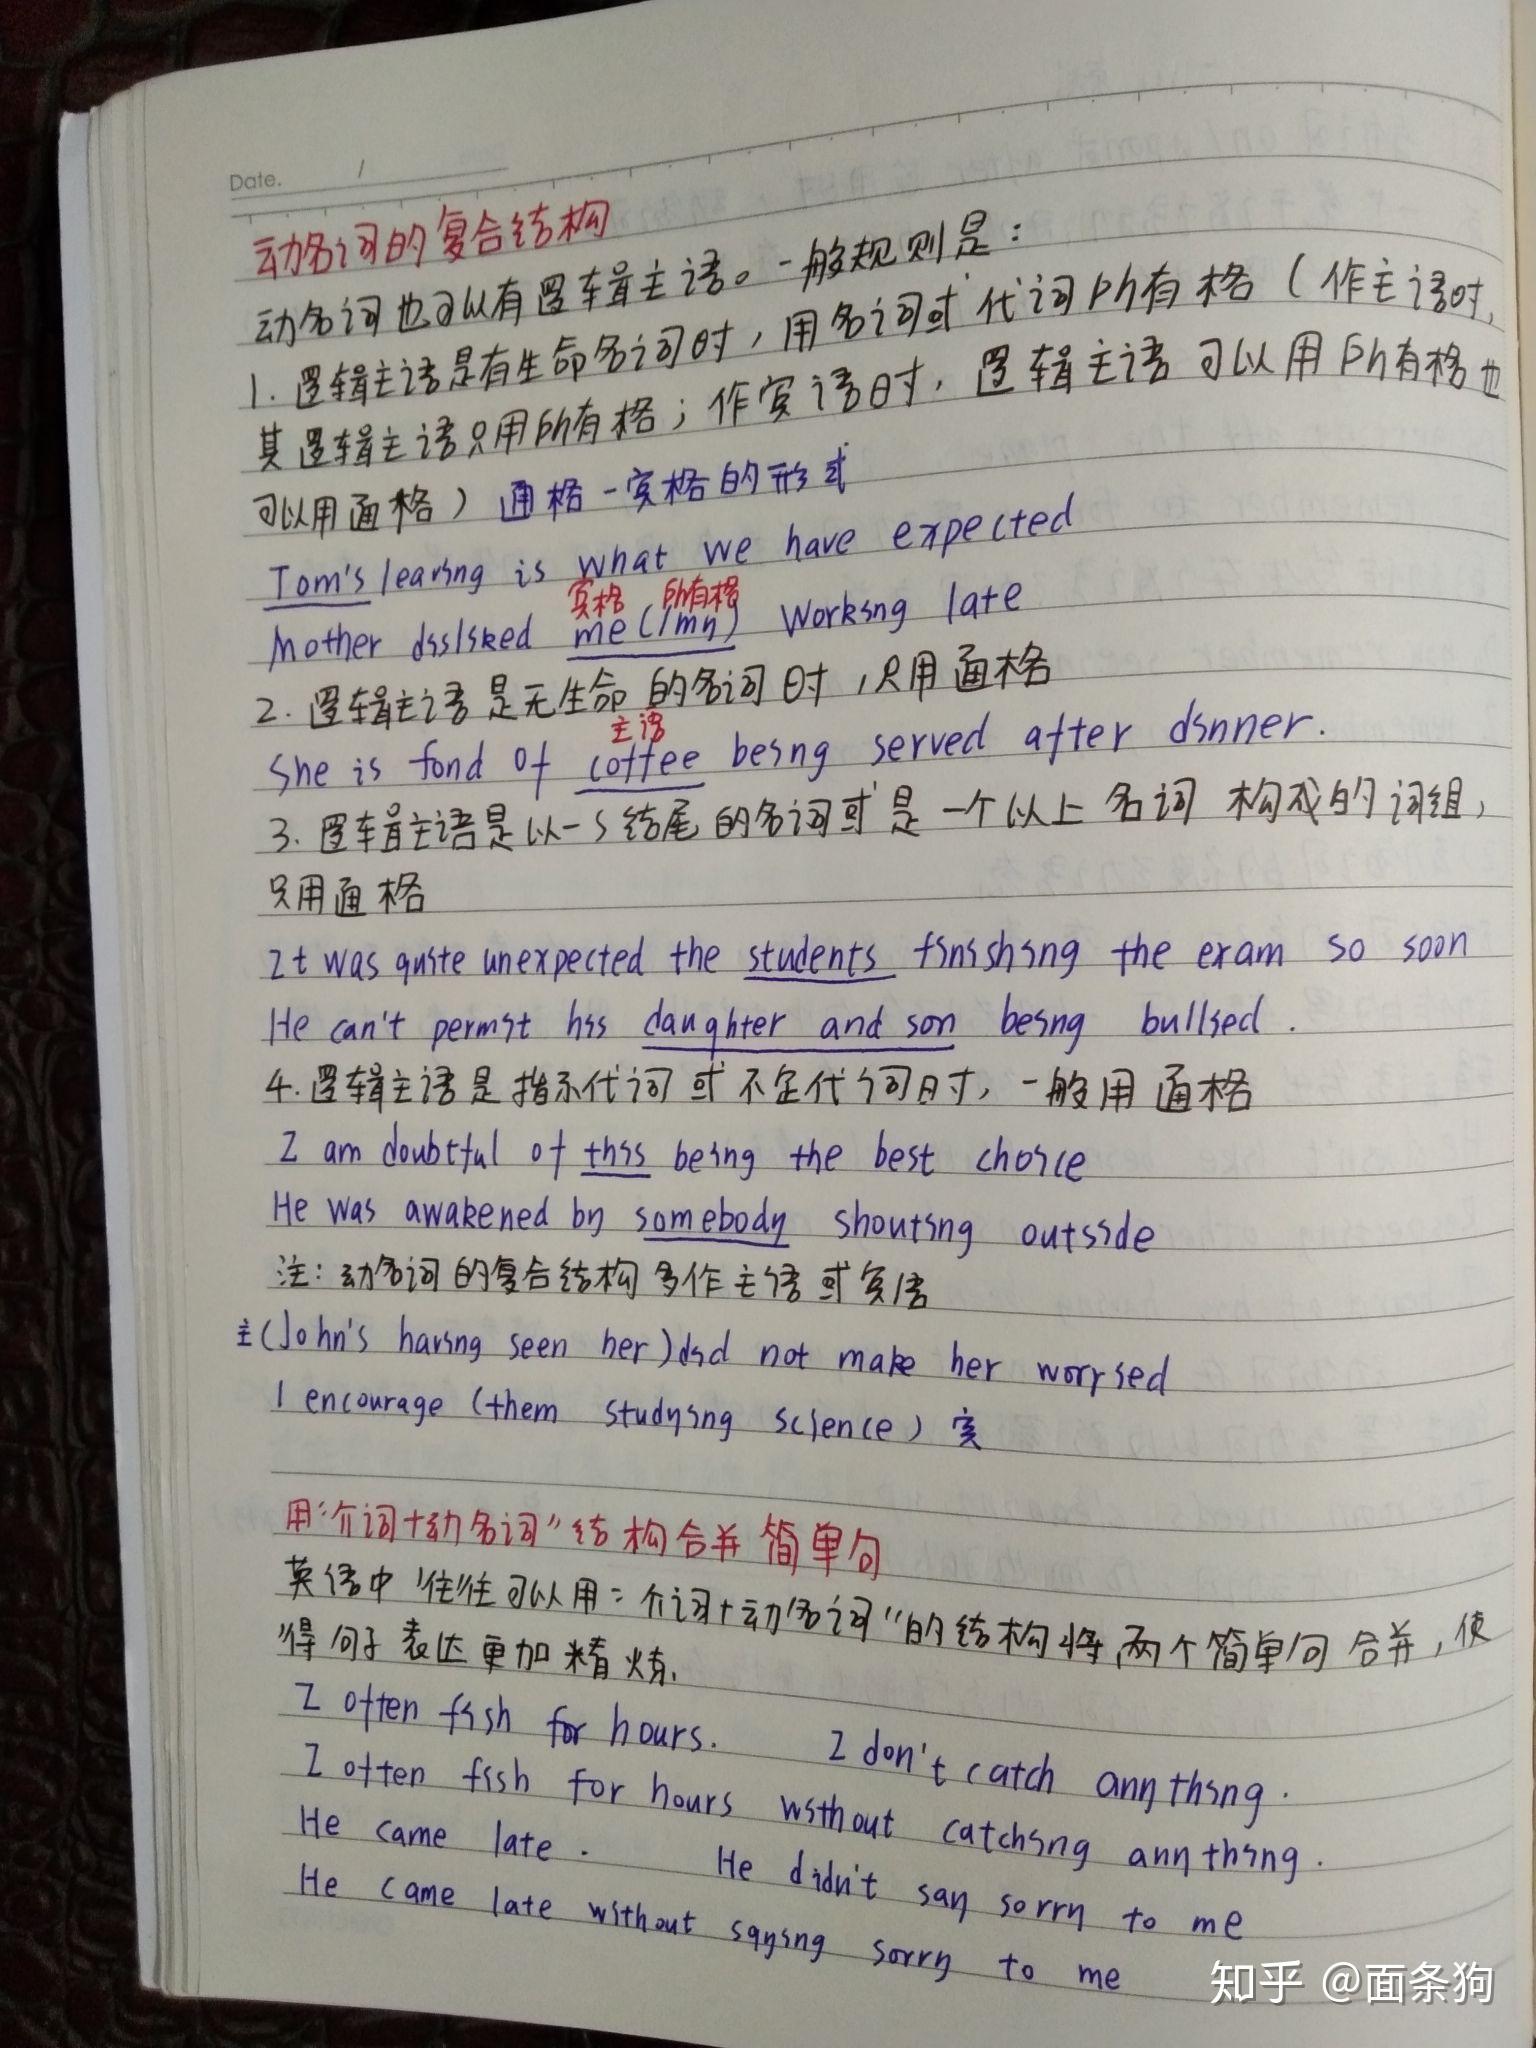 Date. /
动名词的复合结构
动名词也可以有逻辑主语。一般规则是：
1. 逻辑主语是有生命名词时，用名词或代词所有格（作主语时，
其逻辑主语只用所有格；作宾语时，逻辑主语可以用所有格也
可以用通格） 通格-宾格的形式
Tom's learing is what we have expected
宾格 所有格
Mother disliked me(/my) working late
2. 逻辑主语是无生命的名词时，只用通格
主语
She is fond of coffee being served after dinner.
3. 逻辑主语是以-s结尾的名词或是一个以上名词构成的词组，
只用通格
It was quite unexpected the students finishing the exam so soon
He can't permit his daughter and son being bullied.
4. 逻辑主语是指示代词或不定代词时，一般用通格
I am doubtful of this being the best choice
He was awakened by somebody shouting outside
注：动名词的复合结构多作主语或宾语
主(John's having seen her)did not make her worried
I encourage (them studying science) 宾
用“介词+动名词”结构合并简单句
英语中往往可以用“介词+动名词”的结构将两个简单句合并，使
得句子表达更加精炼.
I often fish for hours. I don't catch anything.
I often fish for hours without catching anything.
He came late. He didn't say sorry to me
He came late without saying sorry to me
知乎 @面条狗